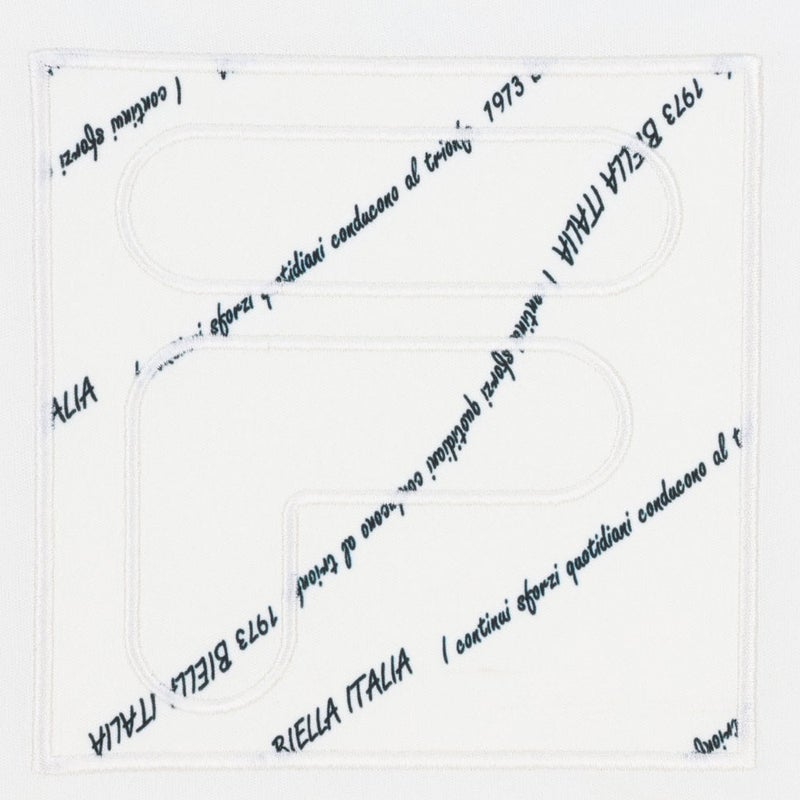 I continui sforzi
I continui sforzi quotidiani conducono al trionfo 1973
1973 BIELLA ITALIA I continui sforzi quotidiani conducono al trionfo 1973 BIELLA ITALIA
ALIA
BIELLA ITALIA I continui sforzi quotidiani conducono al t
trionfo